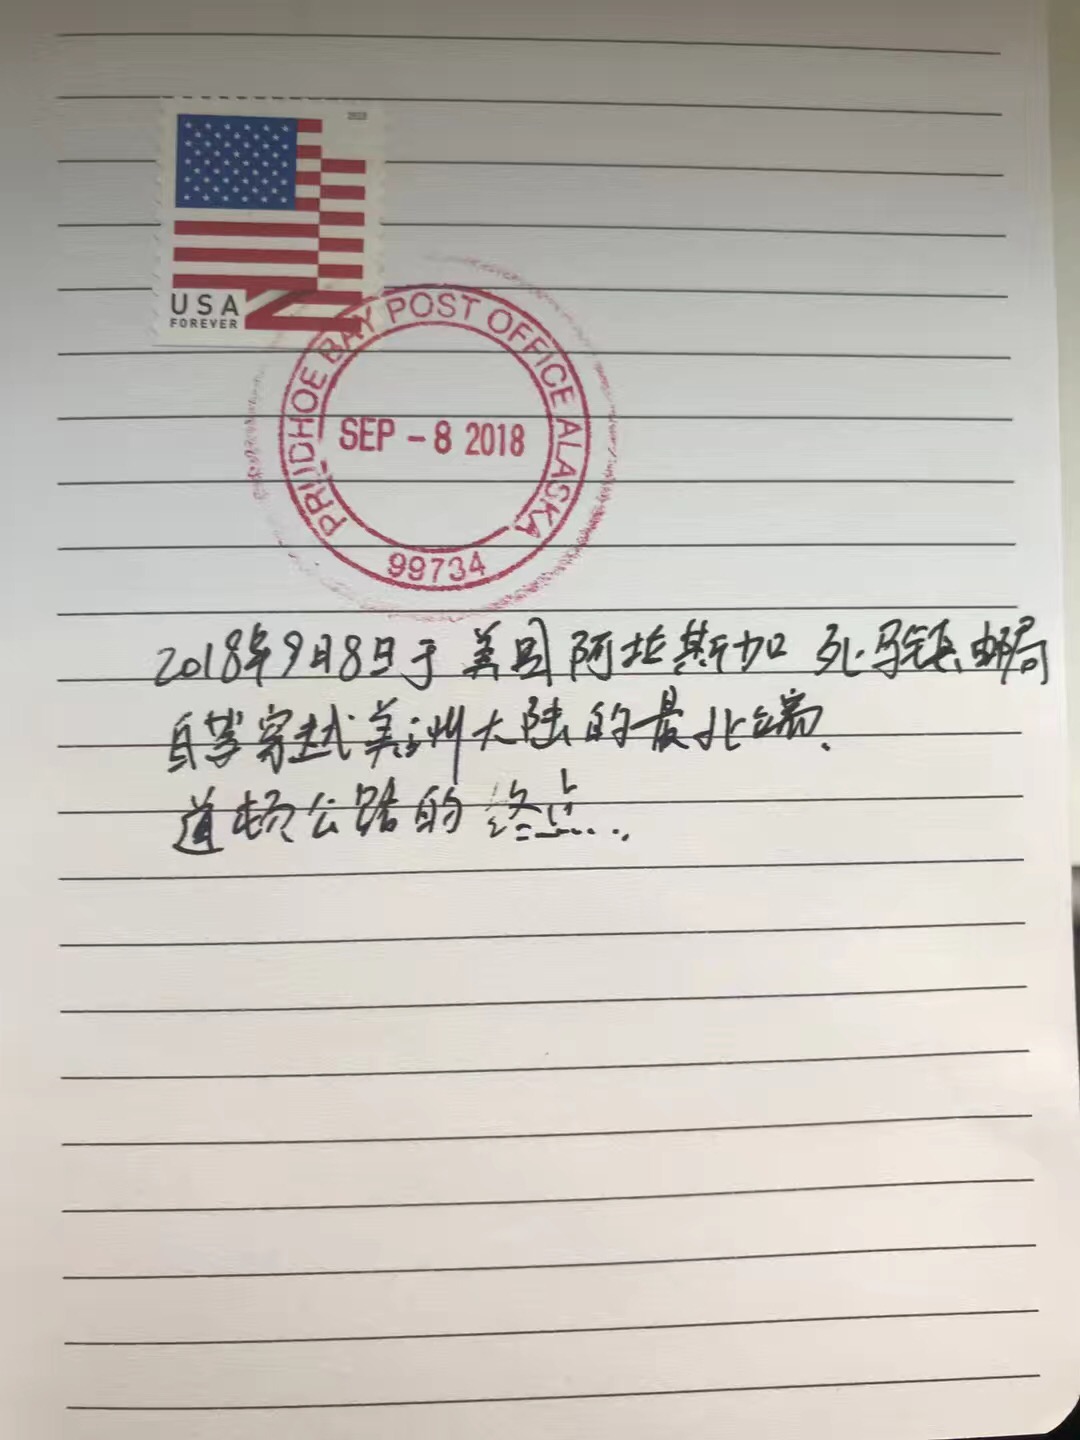 2018
USA
FOREVER
PRUDHOE BAY POST OFFICE ALASKA
SEP - 8 2018
99734
2018年9月8日于美国阿拉斯加 死马镇邮局
自驾穿越美洲大陆的最北端.
道顿公路的终点...